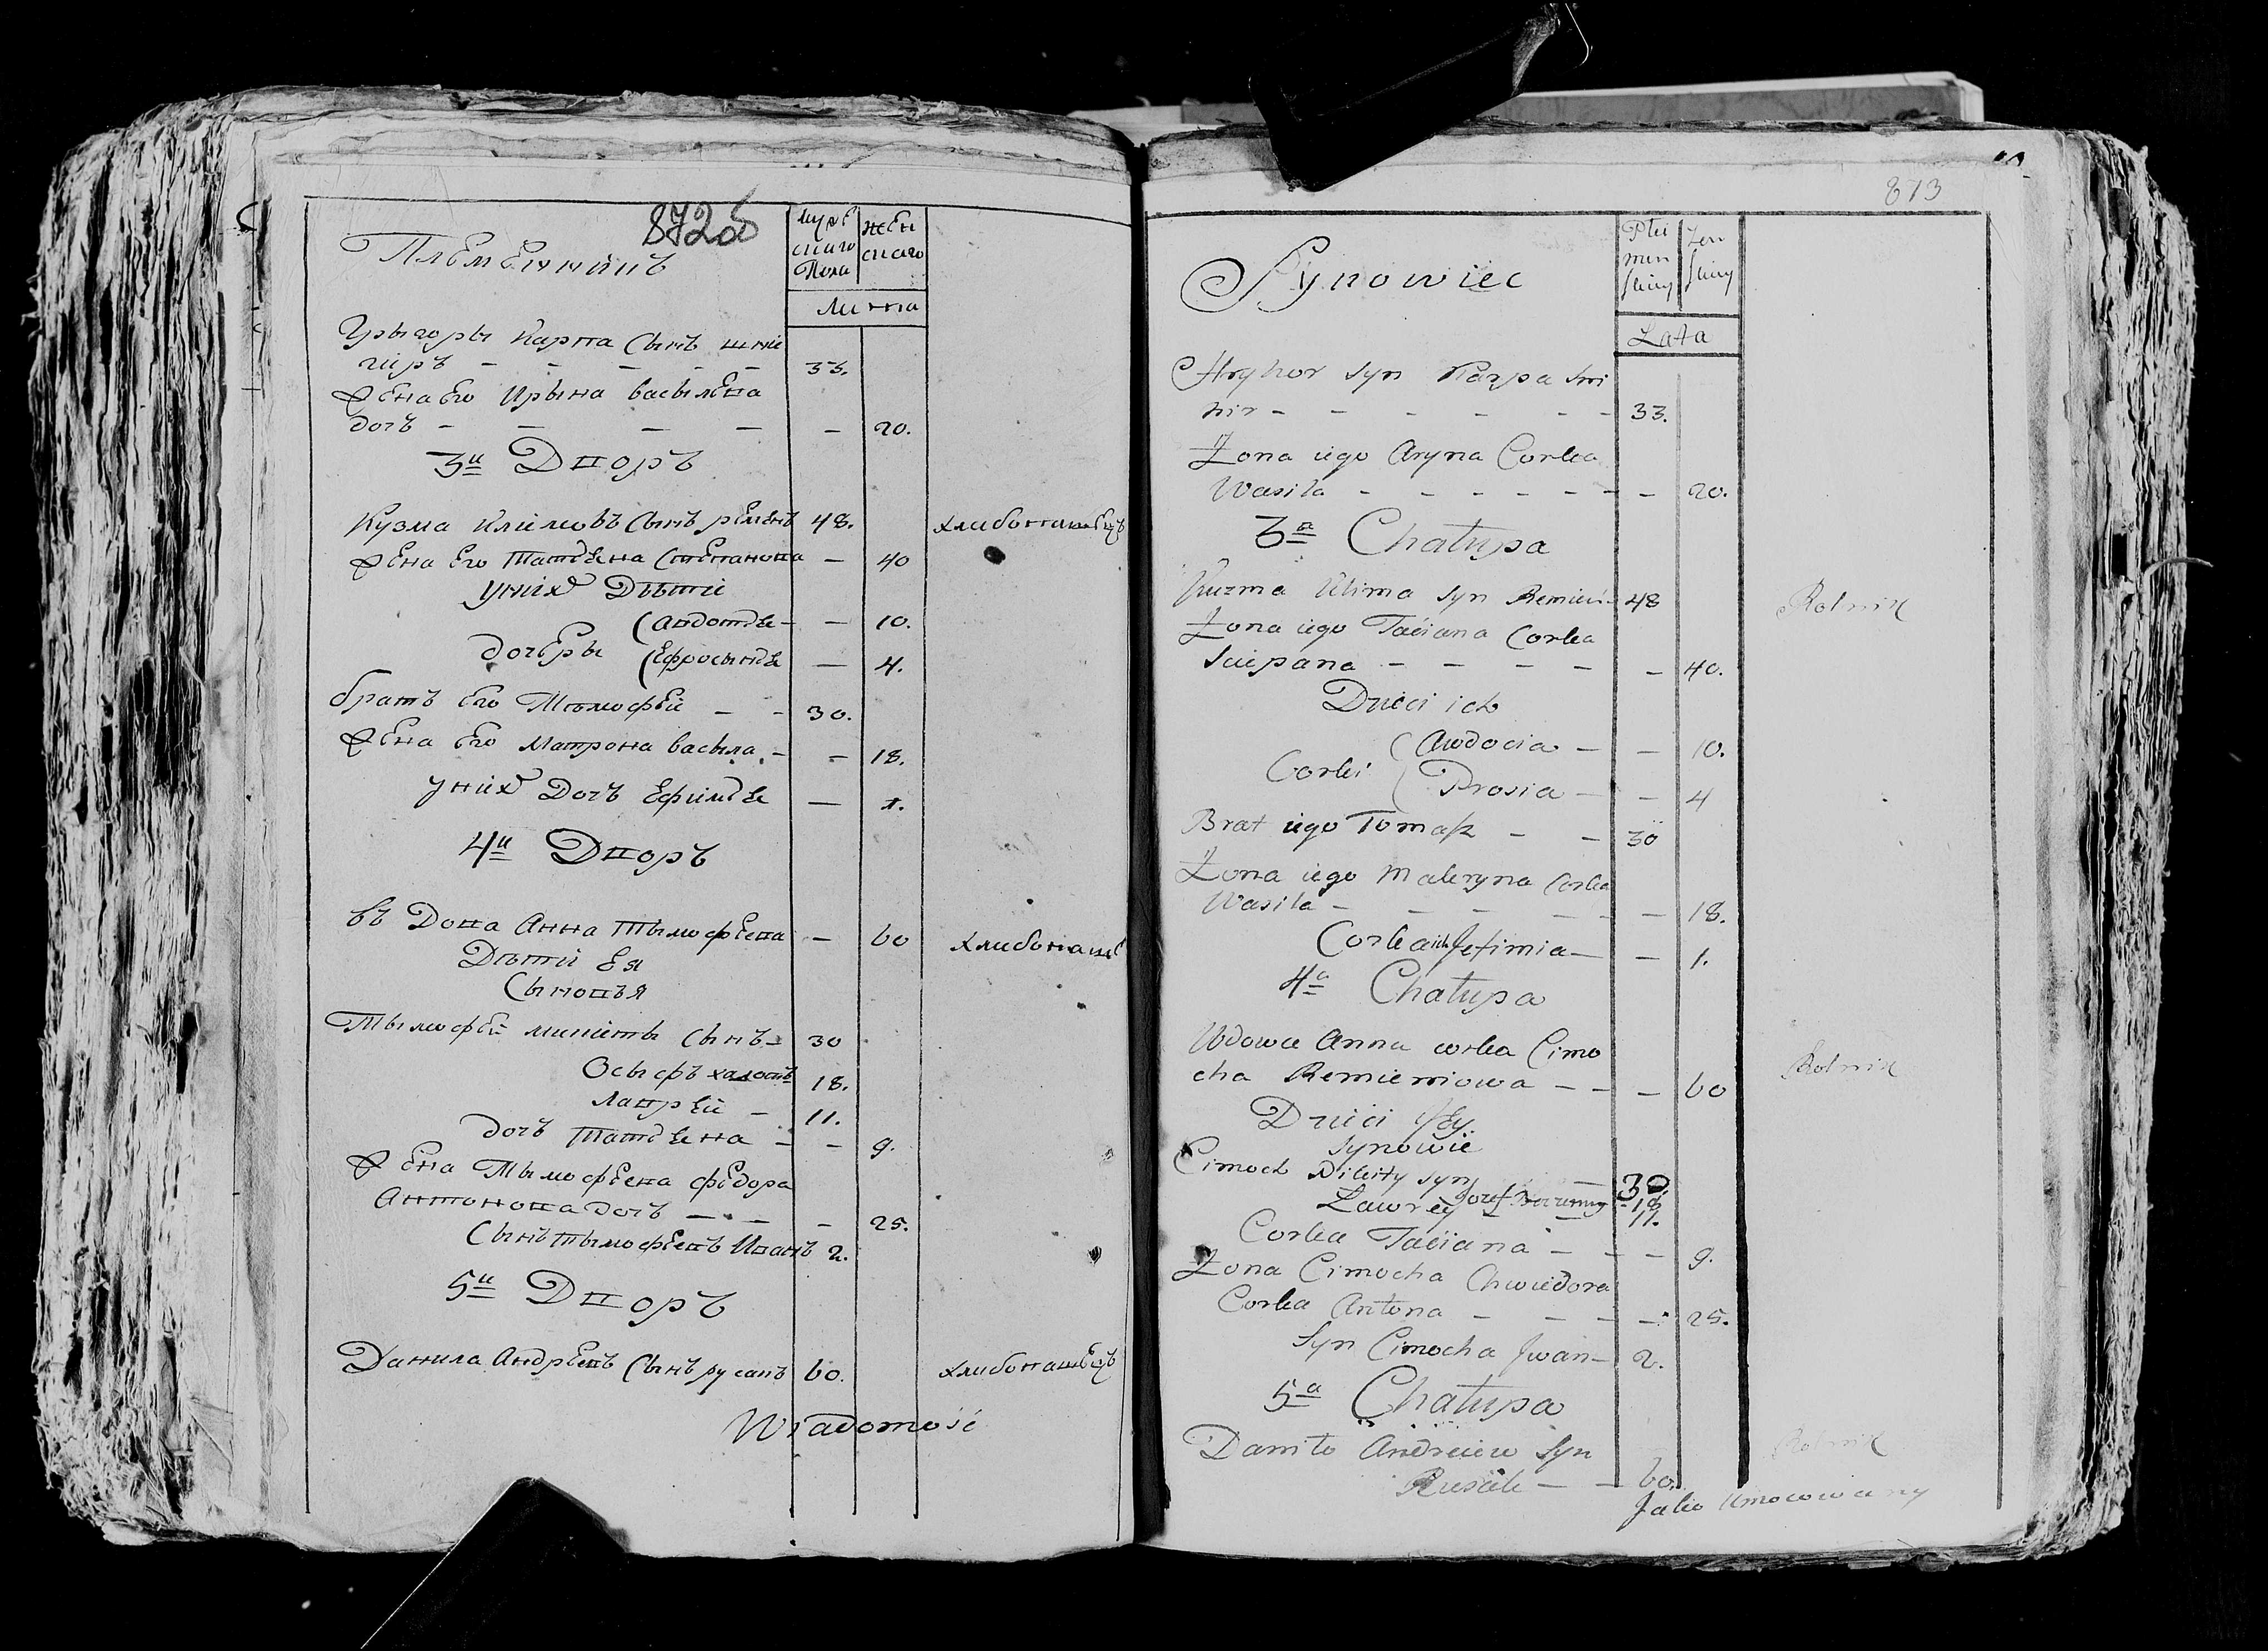 872об
Племенникъ
мужс
скаго
Пола
женс
скаго
Лита
Грыгоры Карпа Сынъ шни
гиръ - - - - - 33.
Жена его Ирына васылева
дочъ - - - - - 20.
3й Дворъ
Кузма Клімовъ Сынъ ременъ 48. хлибопашецъ
Жена Его Татіена Степанова - 40
уних Діти
дочеры (Авдотіе - - 10.
(Ефросыніе - 4.
братъ Его Тымофей - - 30.
Жена Его Матрона васыла - - 18.
уних Дочъ Ефиміе - 1.
4й Дворъ
въ Дова Анна Тымофеева - 60 хлибопаше
Діти Ея
Сыновъя
Тымофей микиты Сынъ - 30
Осыфъ 18.
Лаврей - 11.
дочъ Татіена - - 9.
Жена Тымофеева федора
Антонова дочъ - - - 25.
Сынъ тымофеевъ Иванъ 2.
5й Дворъ
Данила Андреевъ Сынъ русакъ 60. хлибопашецъ
Wiadomość
873
Synowiec
Płci
men
skiey
Zen
skiey
Lata
Hryhor syn Karpa Szni
hir - - - - - - 33.
Żona iego Aryna Corka
Wasila - - - - - - - 20.
3a Chałupa
Kuzma Klima syn Remień - 48 Rolnik
Żona iego Taciana Corka
Sciepana - - - - - 40.
Dzieci ich
Corki (Awdocia - - 10.
(Prosia - - 4
Brat iego Tomasz - - 30
Żona iego Matryna Corka
Wasila - - - - - - 18.
Corka ich Jefimia - - 1.
4a Chałupa
Wdowa Anna corka Cimo
cha Remieniowa - - - 60 Rolnik
Dzieci Jey
synowie
Cimoch Nikity syn - 30
Jozef 18
Ławrey - - 11.
Corka Taciana - - - 9.
Żona Cimocha Chwiedora
Corka Antona - - - - 25.
Syn Cimocha Jwan - 2.
5a Chałupa
Daniło Andreiew Syn Rolnik
Rusak - - 60.
Jako Umocowany